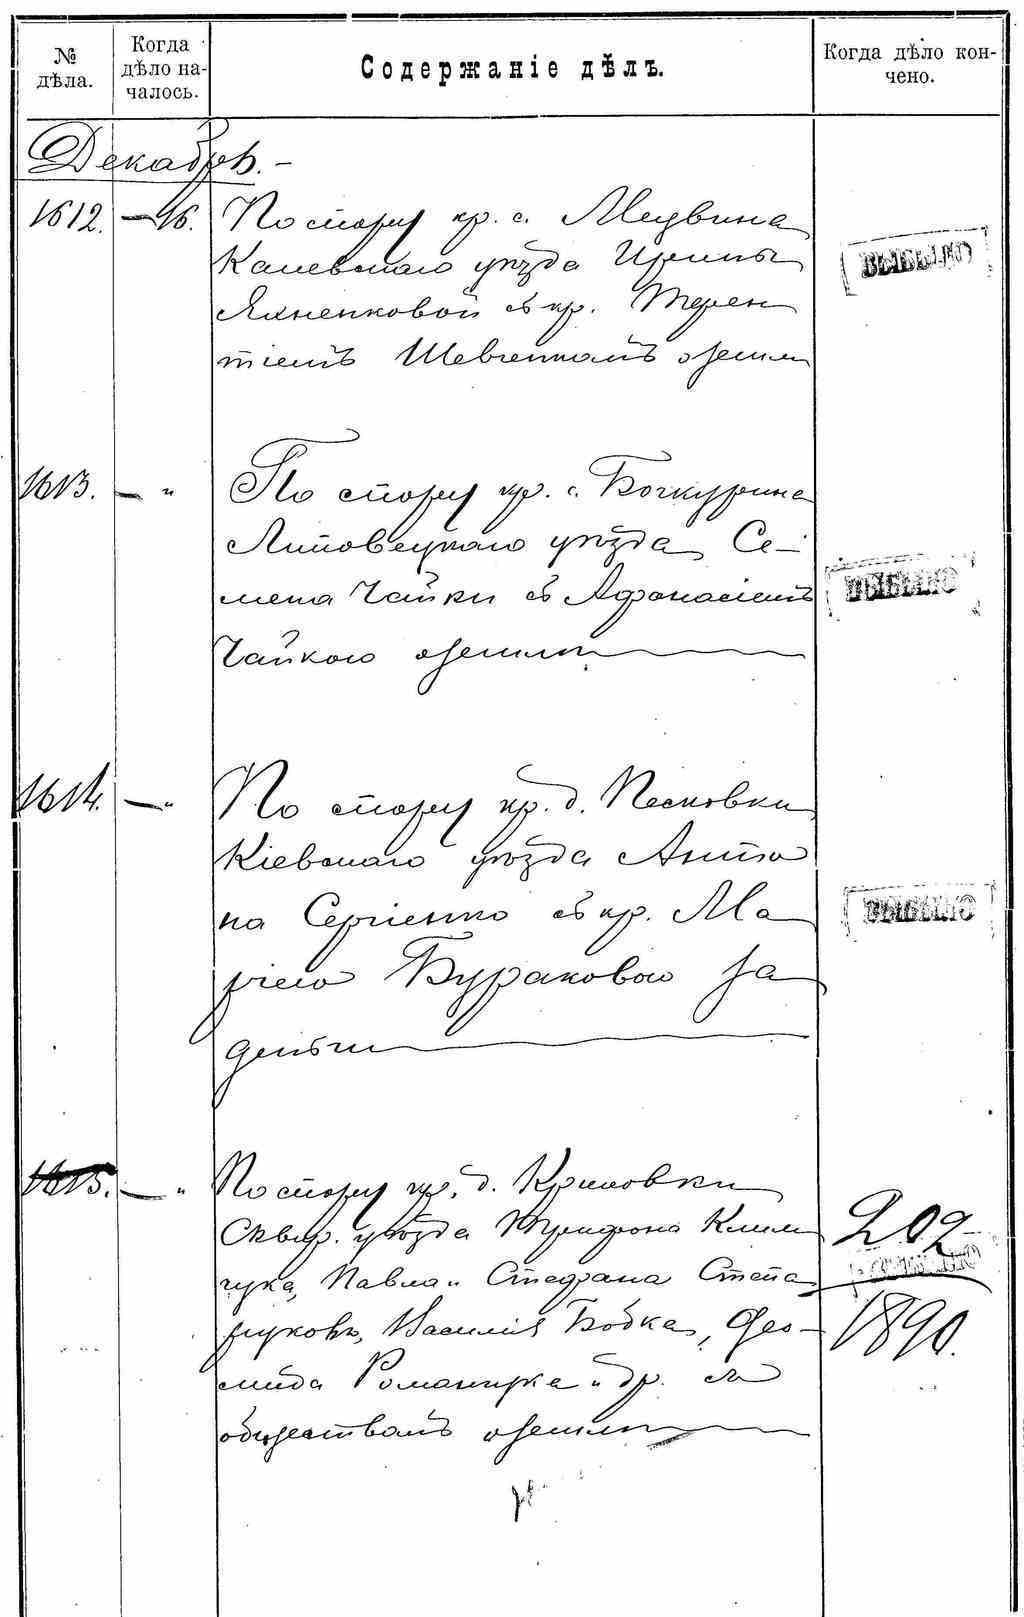 № дѣла.
Когда дѣло на-
чалось.
Содержаніе дѣлъ.
Когда дѣло кон-
чено.
Декабрь.-
1612. — 16. По спору кр. с. Медвина
Каневскаго уѣзда Ирины
Яхненковой съ кр. Терен
тіемъ Шевченкомъ о земли
ВЫБЫЛО
1613. — " По спору кр. с. Бочкурина
Липовецкаго уѣзда Се-
мена Чайки съ Афанасіемъ
Чайкою о земли
ВЫБЫЛО
1614. — " По спору кр. д. Песковки
Кіевскаго уѣзда Анто
на Сергіенко съ кр. Ма
ріею Бураковою за
деньги
ВЫБЫЛО
1615. — " По спору кр. д. Крыловки
Сквир. уѣзда Трифона Клим
чука, Павла и Стефана Степа
нуковъ, Василія Бобка, Дио-
мида Романчука и др. съ
обществомъ о земли
202
1890.